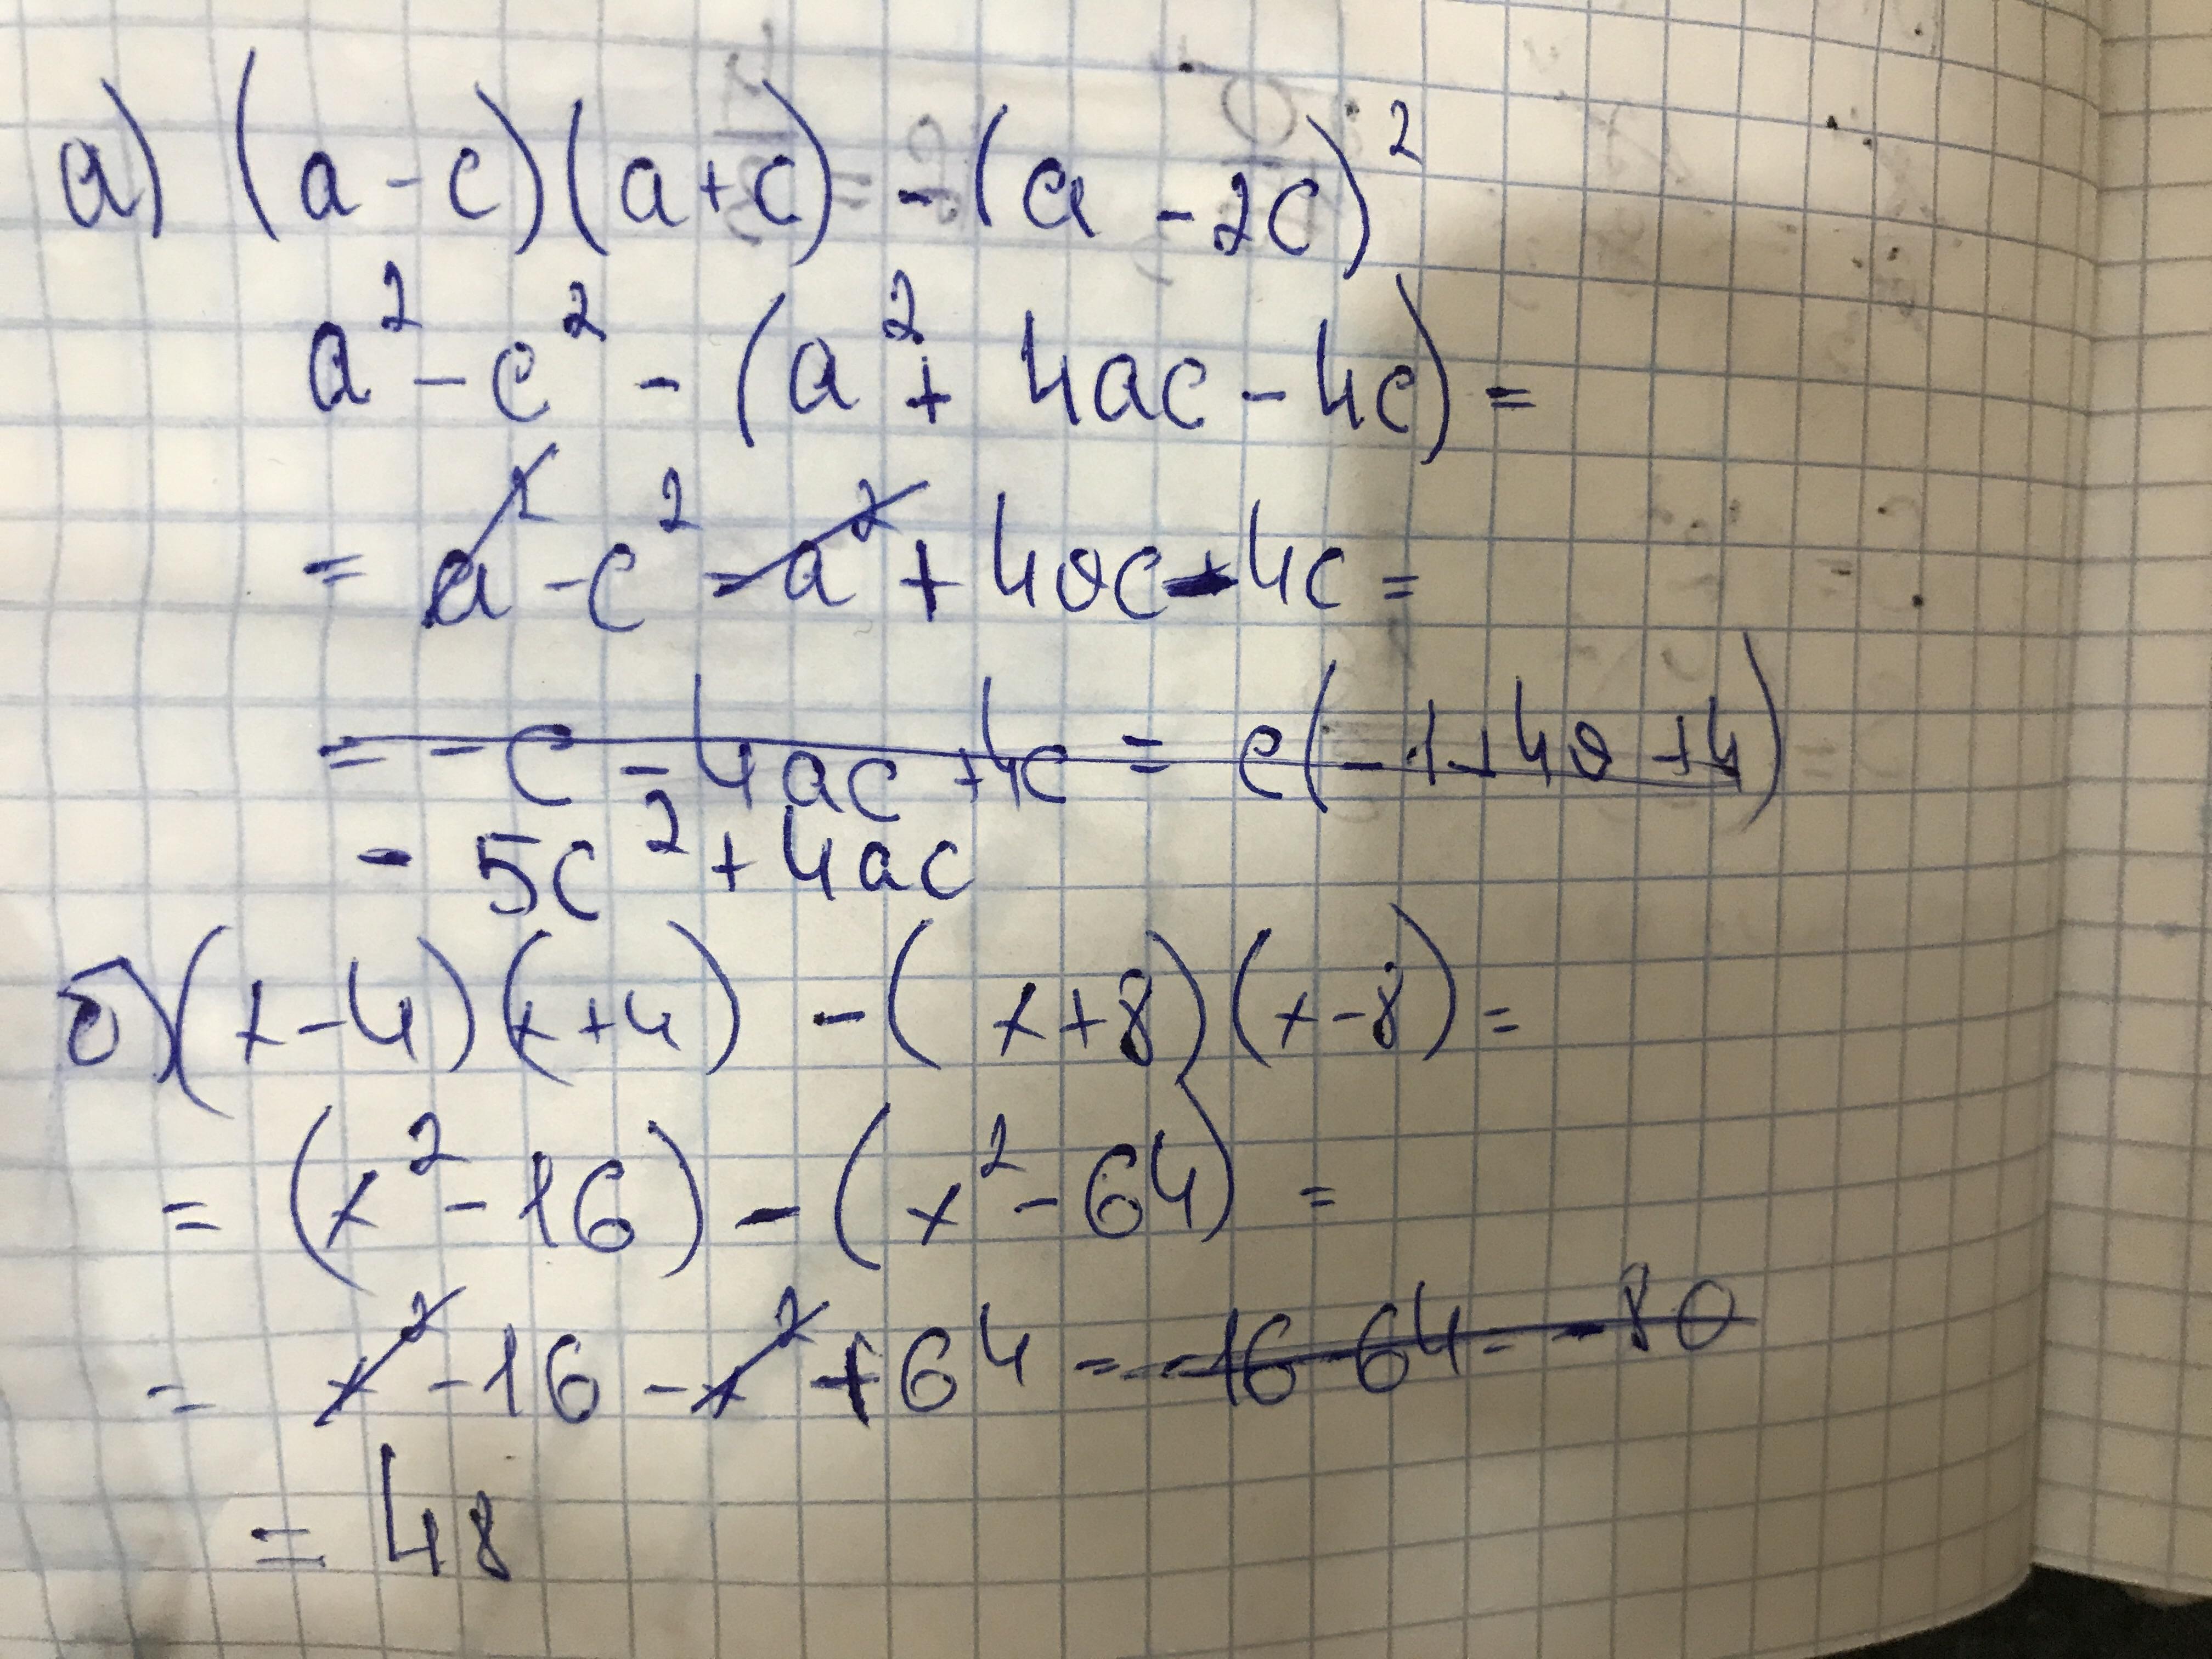 а) (a-c)(a+c) - (a - 2c)²
a² - c² - (a² + 4ac - 4c) =
= a² - c² - a² + 4ac - 4c =
= - c - 4ac + 4c = c(-1+4a+4)
- 5c² + 4ac
б) (x-4)(x+4) - (x+8)(x-8) =
= (x² - 16) - (x² - 64) =
= x² - 16 - x² + 64 = -16-64 = -80
= 48